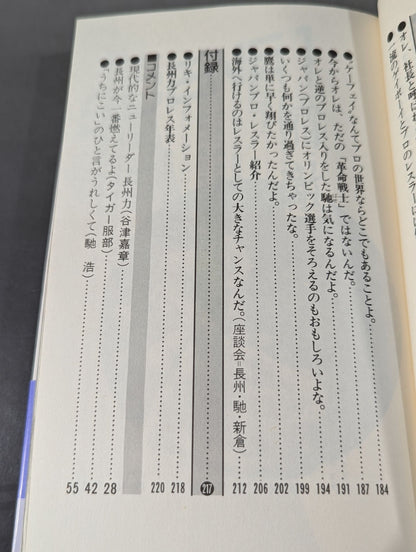 ●オレ、社長と呼
●"ケーフェイ"なんてプロの世界ならどこでもあることよ。……184
●今からオレは、ただの「革命戦士」ではないんだ。……187
●オレと逆のプロレス入りをした馳は気になるんだよ。……191
●ジャパン(プロレス)にオリンピック選手をそろえるのもおもしろいよな。……194
●いくつも何かを通り過ぎてきちゃったな。……199
●鷹は単に早く翔びたかったんだよ。……202
●ジャパンプロ・レスラー紹介……206
●海外へ行けるのはレスラーとしての大きなチャンスなんだ。(座談会=長州・馳・新倉)……212
付録……217
●リキ・インフォメーション……218
●長州力プロレス年表……220
■コメント
●現代的なニューリーダー長州力(谷津嘉章)……28
●長州が今一番燃えてるよ(タイガー服部)……42
●「うちにこい」のひと言がうれしくて(馳 浩)……55